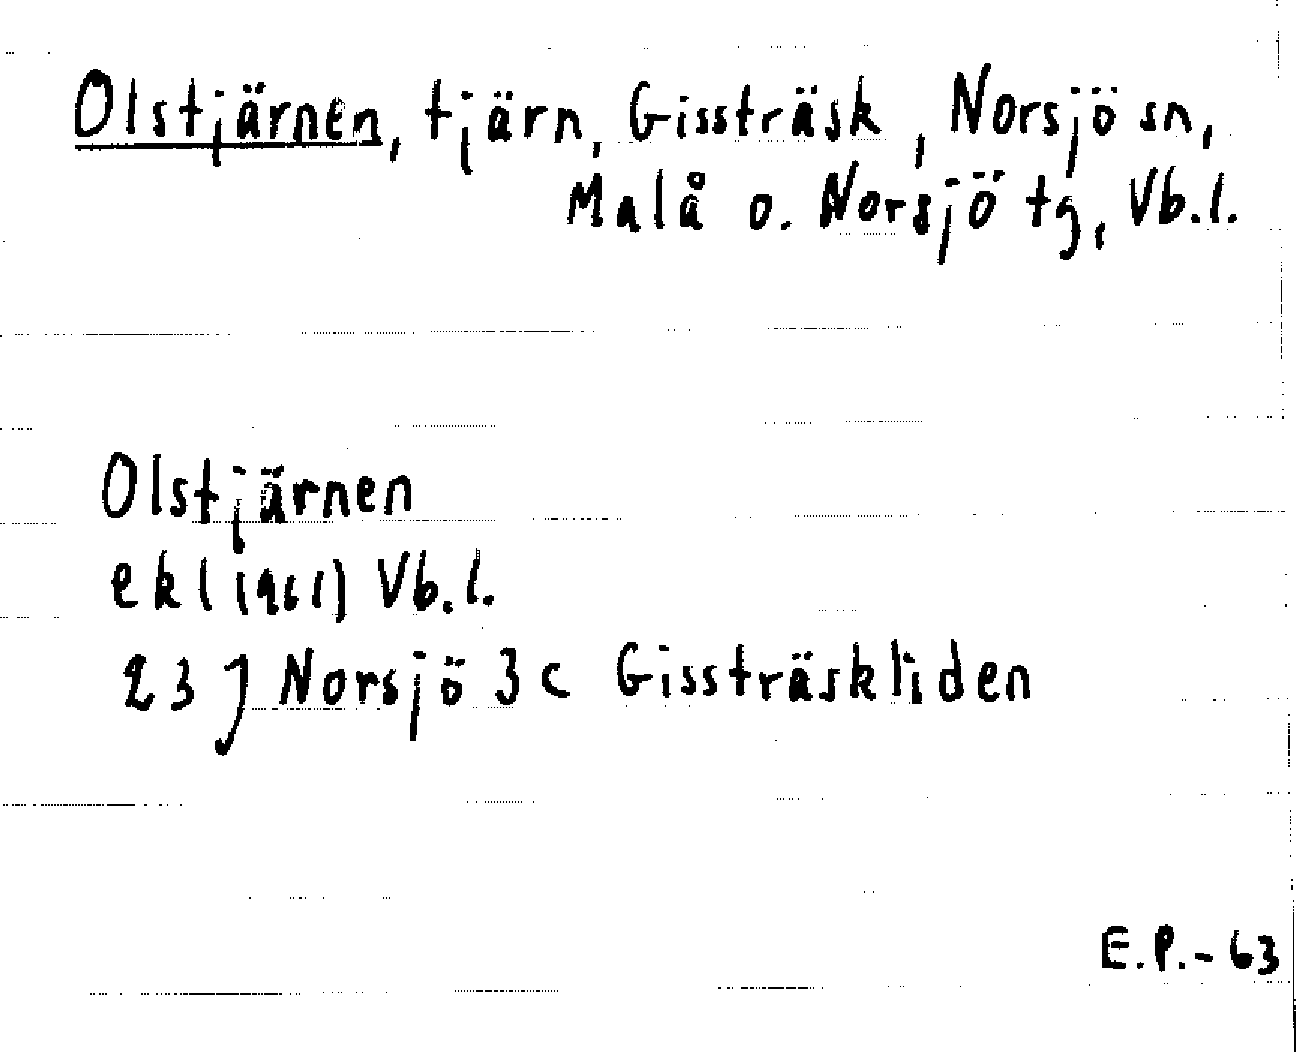 Olstjärnen, tjärn, Gissträsk, Norsjö sn,
Malå o. Norsjö tg, Vb.l.
Olstjärnen
ekl (1961) Vb.l.
23 J Norsjö 3 c Gissträskliden
E.P.-63